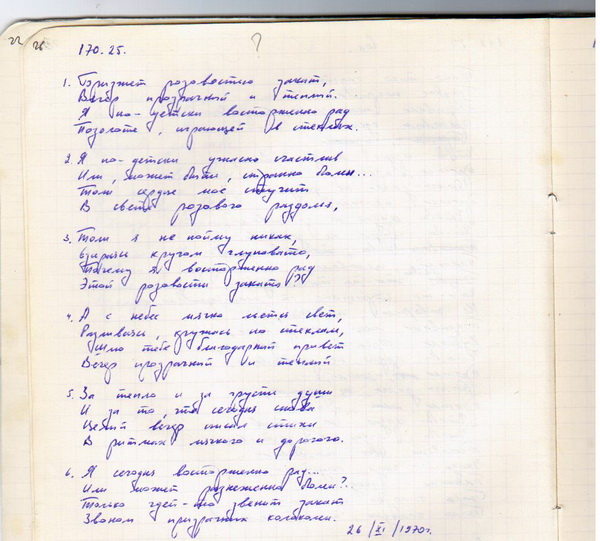 22 26
?
170.25.
1. Брызжет розовостью закат,
Вечер прозрачный и теплый.
Я по-детски восторженно рад
Позолоте, играющей в стеклах.
2. Я по-детски ужасно счастлив
Или, может быть, странно болен...
Толи сердце мое стучит
В свете розового раздолья,
3. Толи я не пойму никак,
Взирая кругом глуповато,
Почему я восторженно рад
Этой розовости заката?
4. А с небес мягко льется свет,
Разливаясь, кружась по стеклам,
Шлю тебе благодарный привет
Вечер прозрачный и теплый
5. За тепло и за грусть души
И за то, что сегодня снова
Целый вечер писал стихи
В ритмах мягкого и дорогого.
6. Я сегодня восторженно рад...
Или может разнеженно болен?..
Только где-то звенит закат
Звоном призрачных колоколен.
26/XI/1970г.